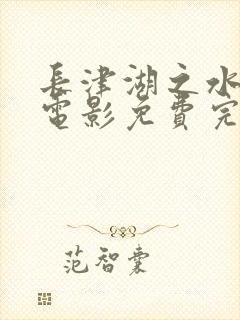 長津湖之水
電影免費完
范智囊